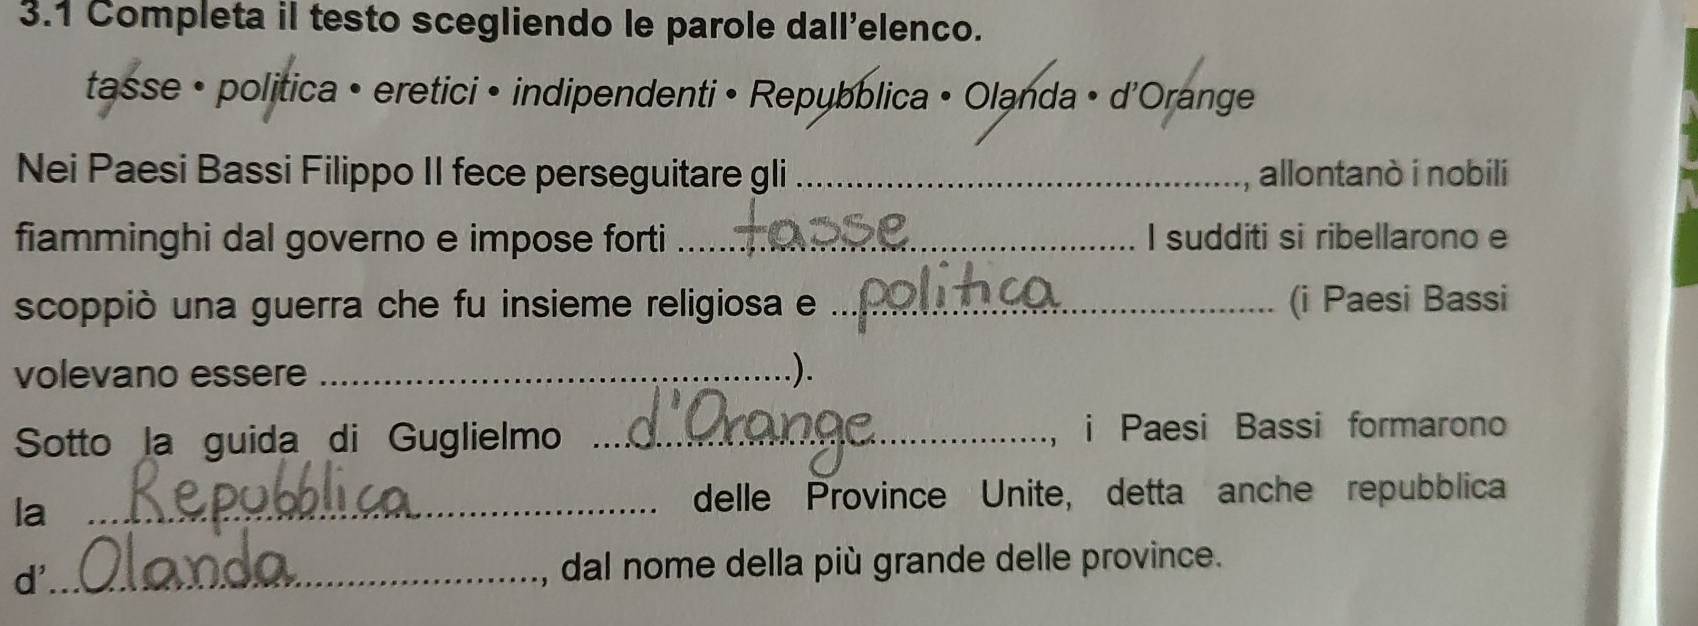 3.1 Completa il testo scegliendo le parole dall'elenco.
tasse • politica • eretici • indipendenti • Repubblica • Olanda • d'Orange
Nei Paesi Bassi Filippo II fece perseguitare gli ............................................., allontanò i nobili
fiamminghi dal governo e impose forti tasse. I sudditi si ribellarono e
scoppiò una guerra che fu insieme religiosa e politica (i Paesi Bassi
volevano essere ..............................................).
Sotto la guida di Guglielmo d'Orange, i Paesi Bassi formarono
la Repubblica delle Province Unite, detta anche repubblica
d'Olanda, dal nome della più grande delle province.